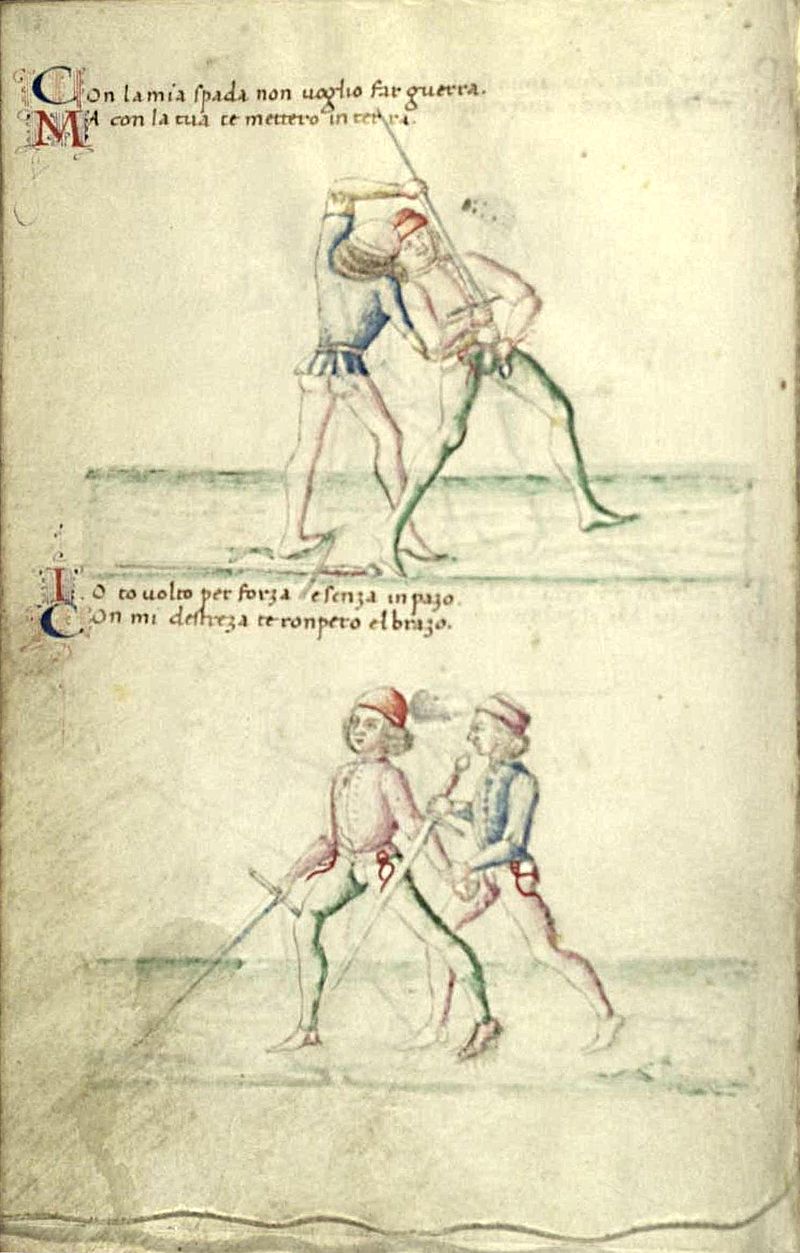 Con la mia spada non uoglio far guerra.
MA con la tua te mettero in terra.
IO to uolto per forza e senza inpazo.
Con mi destreza te ronpero el brazo.